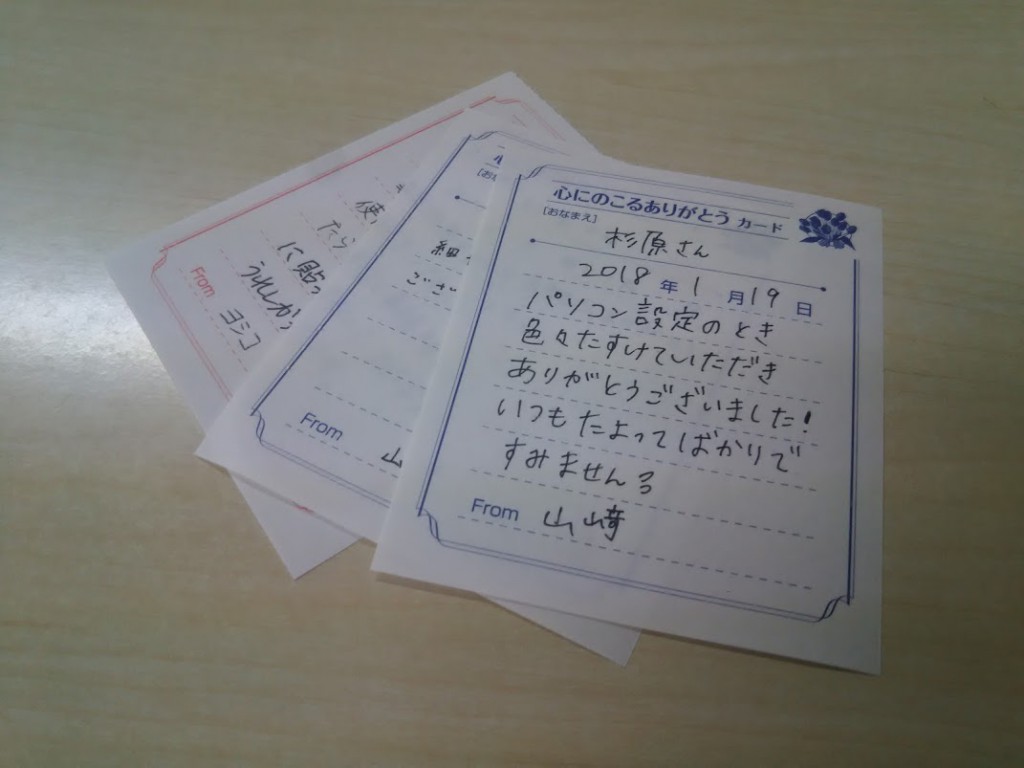 心にのこるありがとう カード
[おなまえ]
杉原さん
2018 年 1 月 19 日
パソコン設定のとき
色々たすけていただき
ありがとうございました!
いつもたよってばかりで
すみません
From 山﨑
[おな
細
ござ
From
山
使
たら
に貼っ
うれしかっ
From ヨシコ